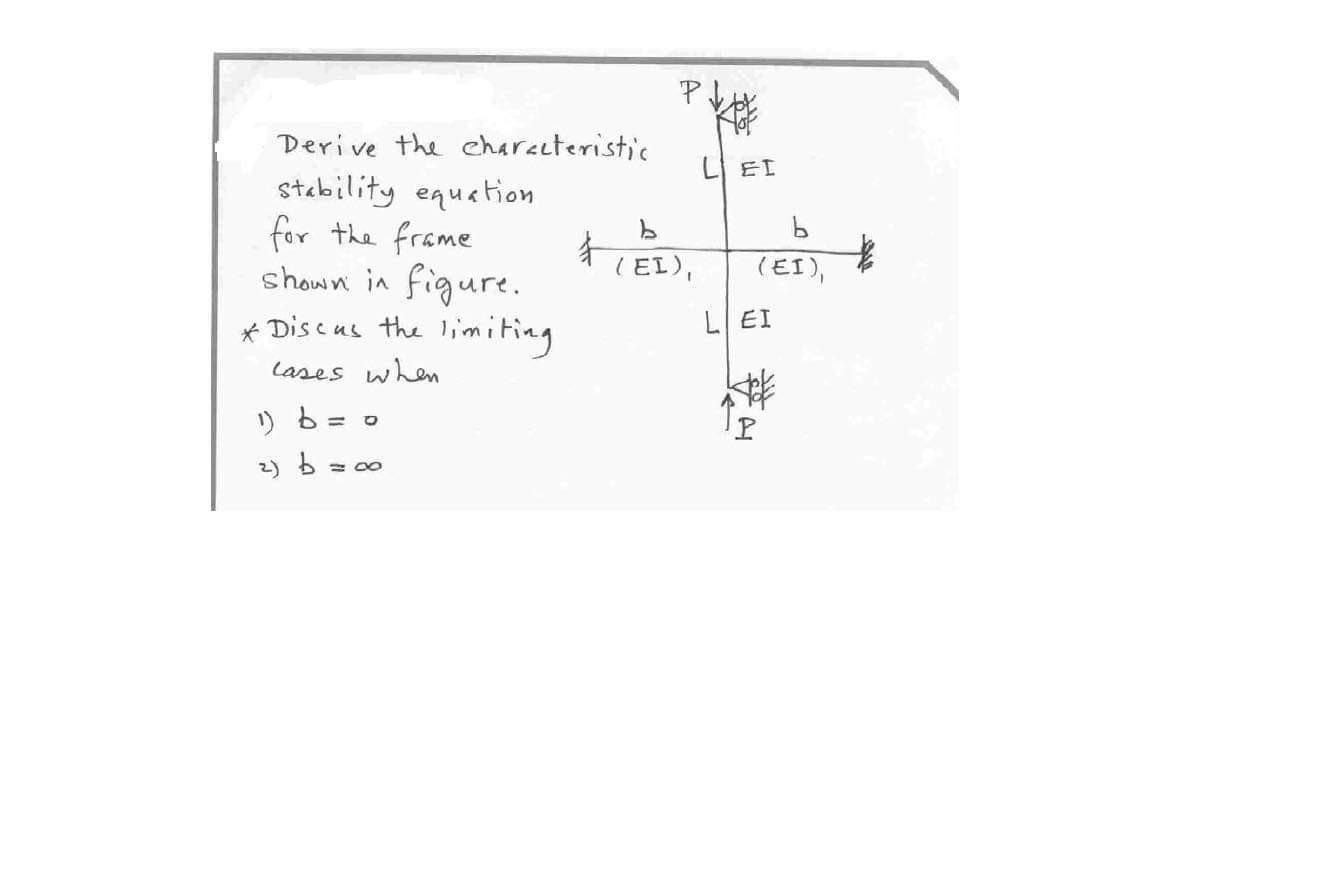 Derive the characteristic
stability equation
for the frame
shown in figure.
* Discus the limiting
cases when
1) b = 0
2) b = ∞
P
L EI
b b
(EI)₁ (EI)₁
L EI
P